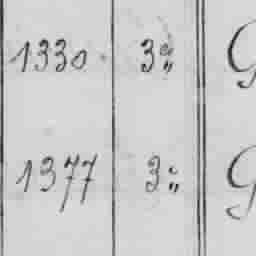 1330 3 G
1377 3 G